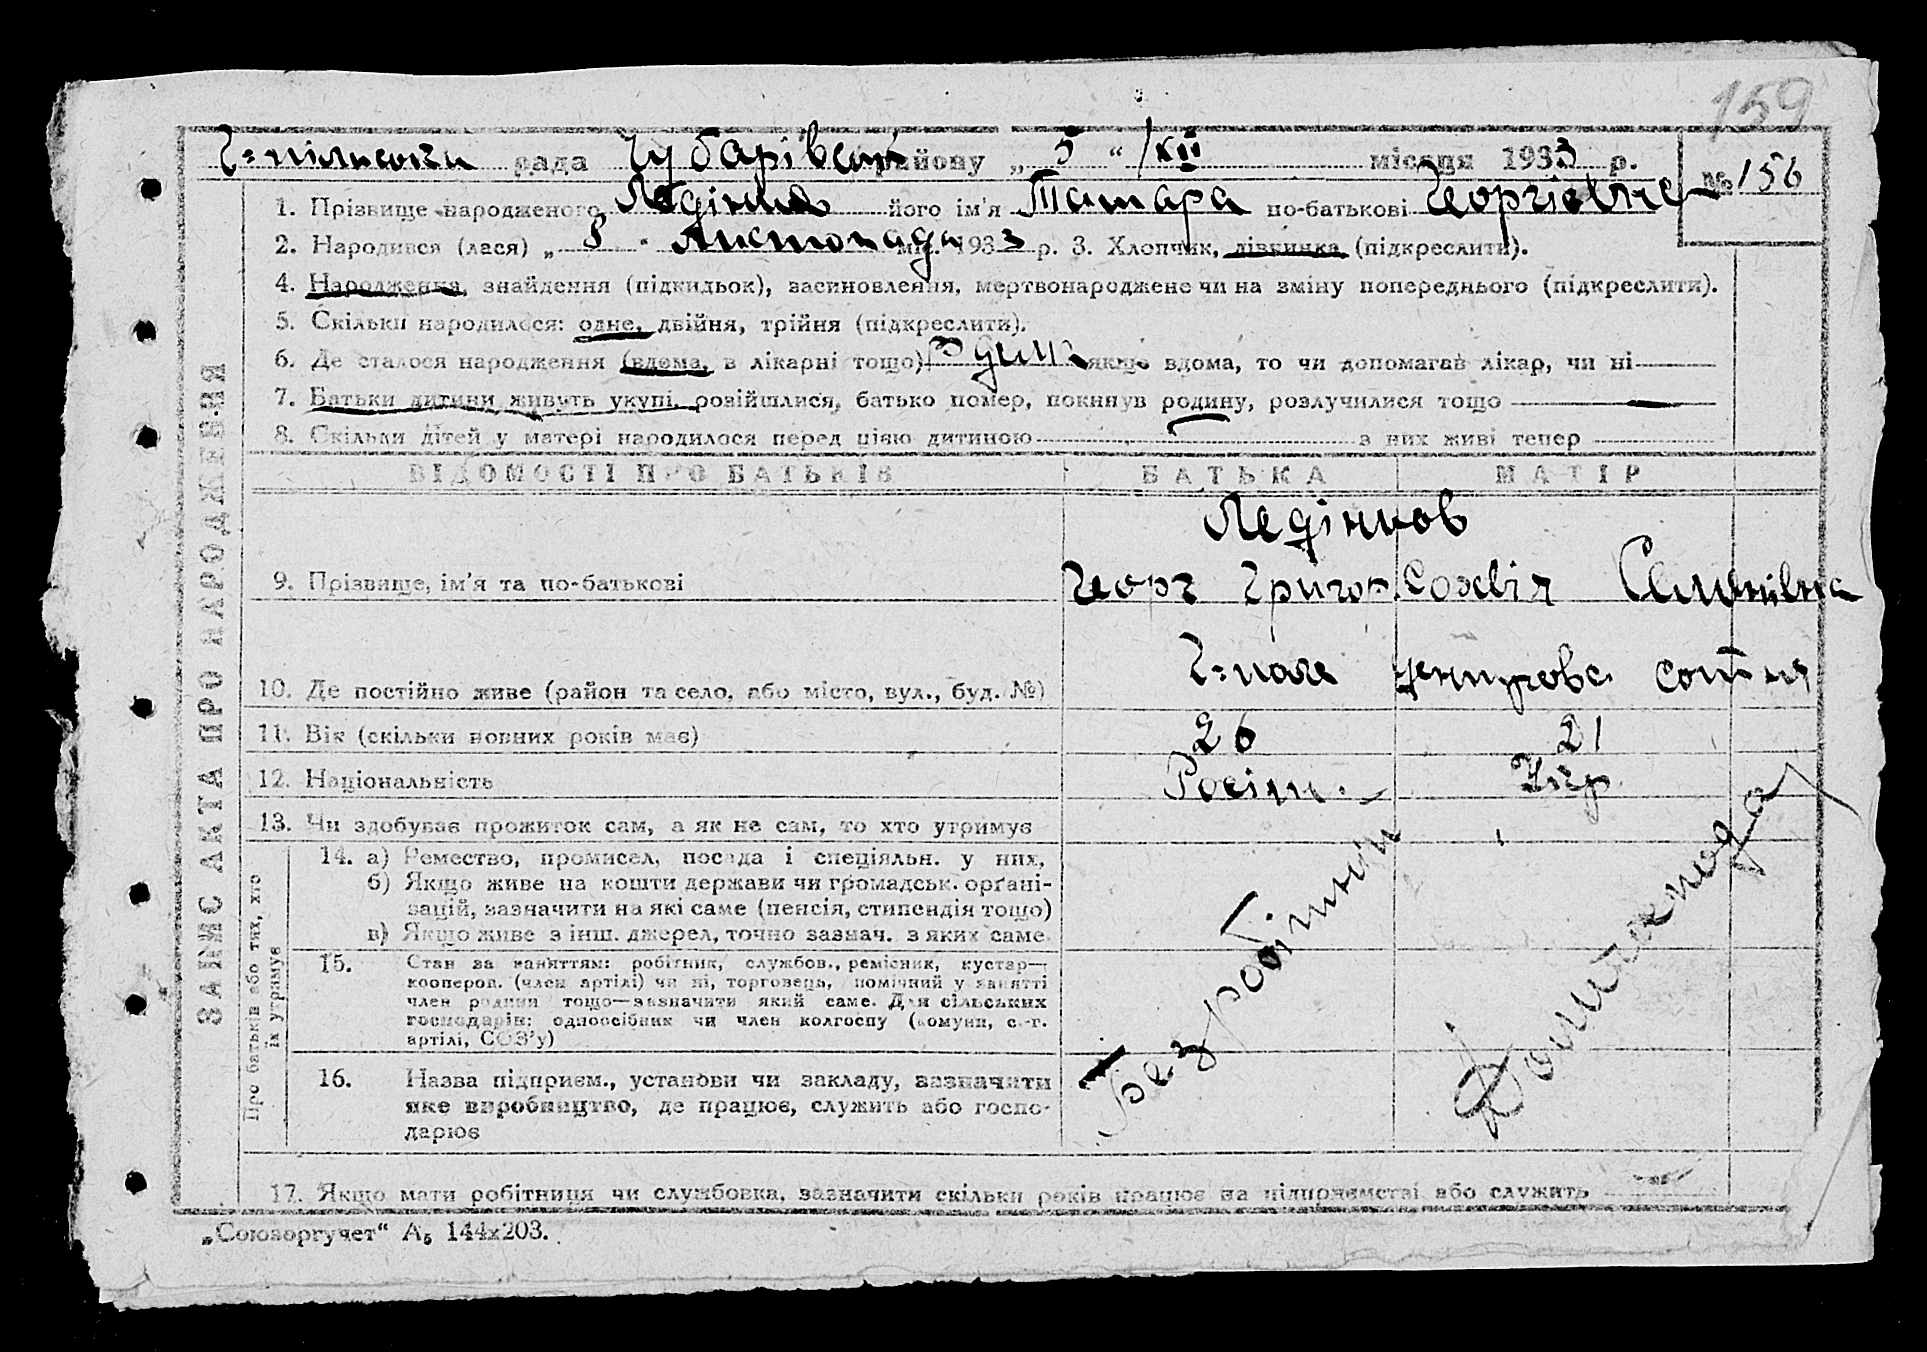 159
Г=пільська рада Чубарівськ району „ 5 “ /XII місяця 1933 р.
№ 156
1. Прізвище народженого Ледінков його ім'я Тамара по-батькові Георгієвна
2. Народився (лася) „ 8 “ Листопада міс. 1933 р. 3. Хлопчик, дівчинка (підкреслити).
4. Народження, знайдення (підкидьок), засиновлення, мертвонароджене чи на зміну попереднього (підкреслити).
5. Скільки народилося: одне, двійня, трійня (підкреслити).
6. Де сталося народження (вдома, в лікарні тощо) якщо вдома, то чи допомагав лікар, чи ні
7. Батьки дитини живуть укупі, розійшлися, батько помер, покинув родину, розлучилися тощо —
8. Скільки дітей у матері народилося перед цією дитиною з них живі тепер
ЗАПИС АКТА ПРО НАРОДЖЕННЯ
ВІДОМОСТІ ПРО БАТЬКІВ БАТЬКА МАТІР
Ледінков
9. Прізвище, ім'я та по-батькові Георг Григор. Софія Семенівна
10. Де постійно живе (район та село, або місто, вул., буд. №) Г=поле сотня
11. Вік (скільки повних років має) 26 21
12. Національність Росіян. Укр
13. Чи здобуває прожиток сам, а як не сам, то хто утримує
Про батьків або тих, хто їх утримує
14. а) Ремество, промисел, посада і спеціяльн. у них,
б) Якщо живе на кошти держави чи громадськ. органі-
зацій, зазначити на які саме (пенсія, стипендія тощо)
в) Якщо живе з інш. джерел, точно зазнач. з яких саме
Безробітний
Домогоспода
15. Стан за заняттям: робітник, службов., ремісник, кустар—
кооперов. (член артілі) чи ні, торговець, помічний у занятті
член родини тощо—зазначити який саме. Для сільських
господарів: одноосібник чи член колгоспу (комуни, с.-г.
артілі, СОЗ'у)
16. Назва підприєм., установи чи закладу, зазначити
яке виробництво, де працює, служить або госпо-
дарює
17. Якщо мати робітниця чи службовка, зазначити скільки років працює на підприємстві або служить
„Союзоргучет“ А₅ 144х203.